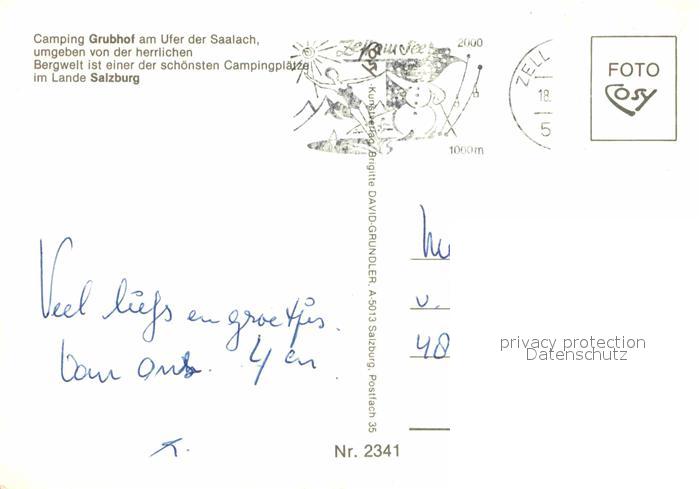 Camping Grubhof am Ufer der Saalach,
umgeben von der herrlichen
Bergwelt ist einer der schönsten Campingplätze
im Lande Salzburg
Zell am See
2000
1000m
ZELL
18.
5
FOTO
Cosy
Kunstverlag Brigitte DAVID-GRUNDLER, A-5013 Salzburg, Postfach 35
Veel liefs en groetjes.
Van ons. 4 en
v.
48
privacy protection
Datenschutz
Nr. 2341